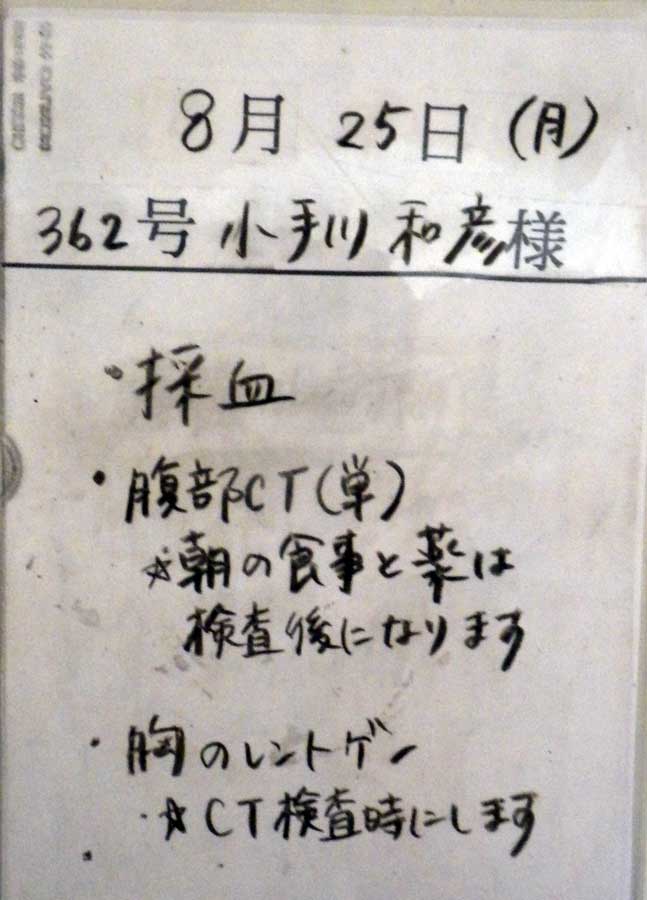 8月 25日 (月)
362号 小手川 和彦様
・採血
・腹部CT(単)
☆朝の食事と薬は
検査後になります
・胸のレントゲン
☆CT検査時にします